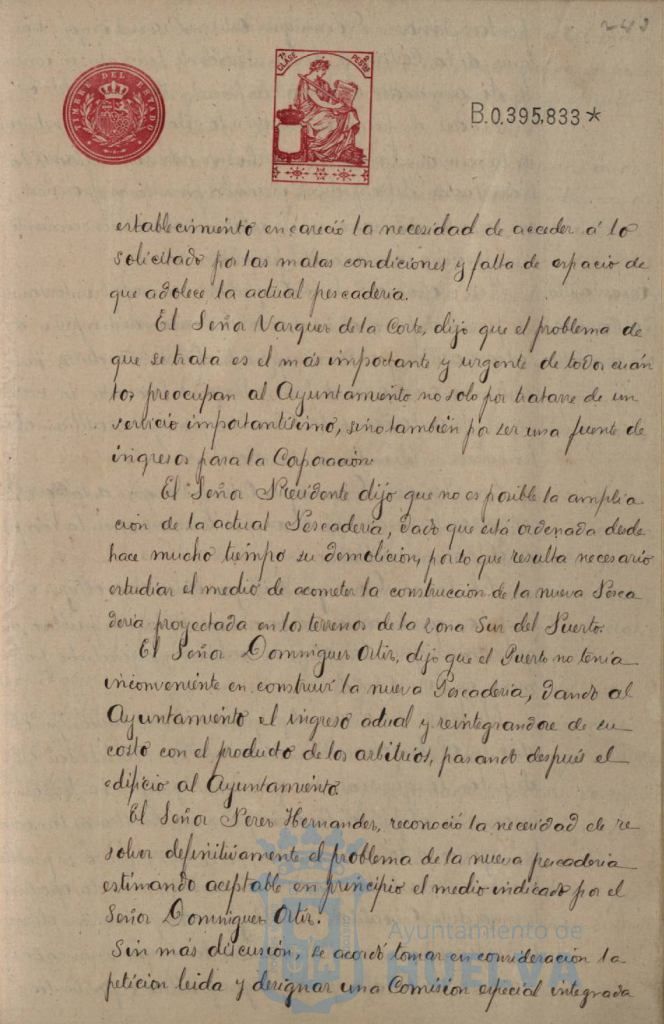 243
TIMBRE DEL ESTADO
7ª CLASE 2 PESETAS
B.0.395,833*
establecimiento encareció la necesidad de acceder á lo
solicitado por las malas condiciones y falta de espacio de
que adolece la actual pescaderia.
El Señor Vazquez de la Corte, dijo que el problema de
que se trata es el más importante y urgente de todos cuán
tos preocupan al Ayuntamiento no solo por tratarse de un
servicio importantísimo, sino también por ser una fuente de
ingresos para la Corporación.
El Señor Presidente dijo que no es posible la amplia
ción de la actual Pescaderia, dado que está ordenada desde
hace mucho tiempo su demolición, por lo que resulta necesario
estudiar el medio de acometer la construcción de la nueva Pesca
deria proyectada en los terrenos de la zona Sur del Puerto.
El Señor Dominguez Ortiz, dijo que el Puerto no tenía
inconveniente en construir la nueva Pescaderia, dando al
Ayuntamiento el ingreso actual y reintegrandose de su
costo con el producto de los arbitrios, pasando después el
edificio al Ayuntamiento.
El Señor Perez Hernandez, reconoció la necesidad de re
solver definitivamente el problema de la nueva pescaderia
estimando aceptable en principio el medio indicado por el
Señor Dominguez Ortiz.
Sin más discusión, se acordó tomar en consideración la
petición leida y designar una Comisión especial integrada
Ayuntamiento de
HUELVA